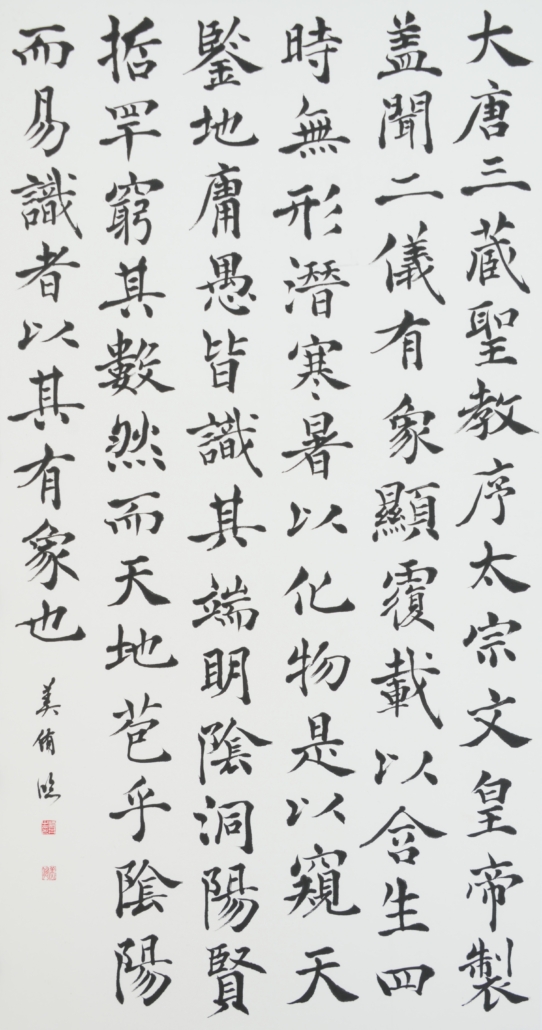 大唐三蔵聖教序太宗文皇帝製
盖聞二儀有象顯覆載以含生四
時無形潛寒暑以化物是以窺天
鑒地庸愚皆識其端明陰洞陽賢
哲罕窮其數然而天地苞乎陰陽
而易識者以其有象也
臨